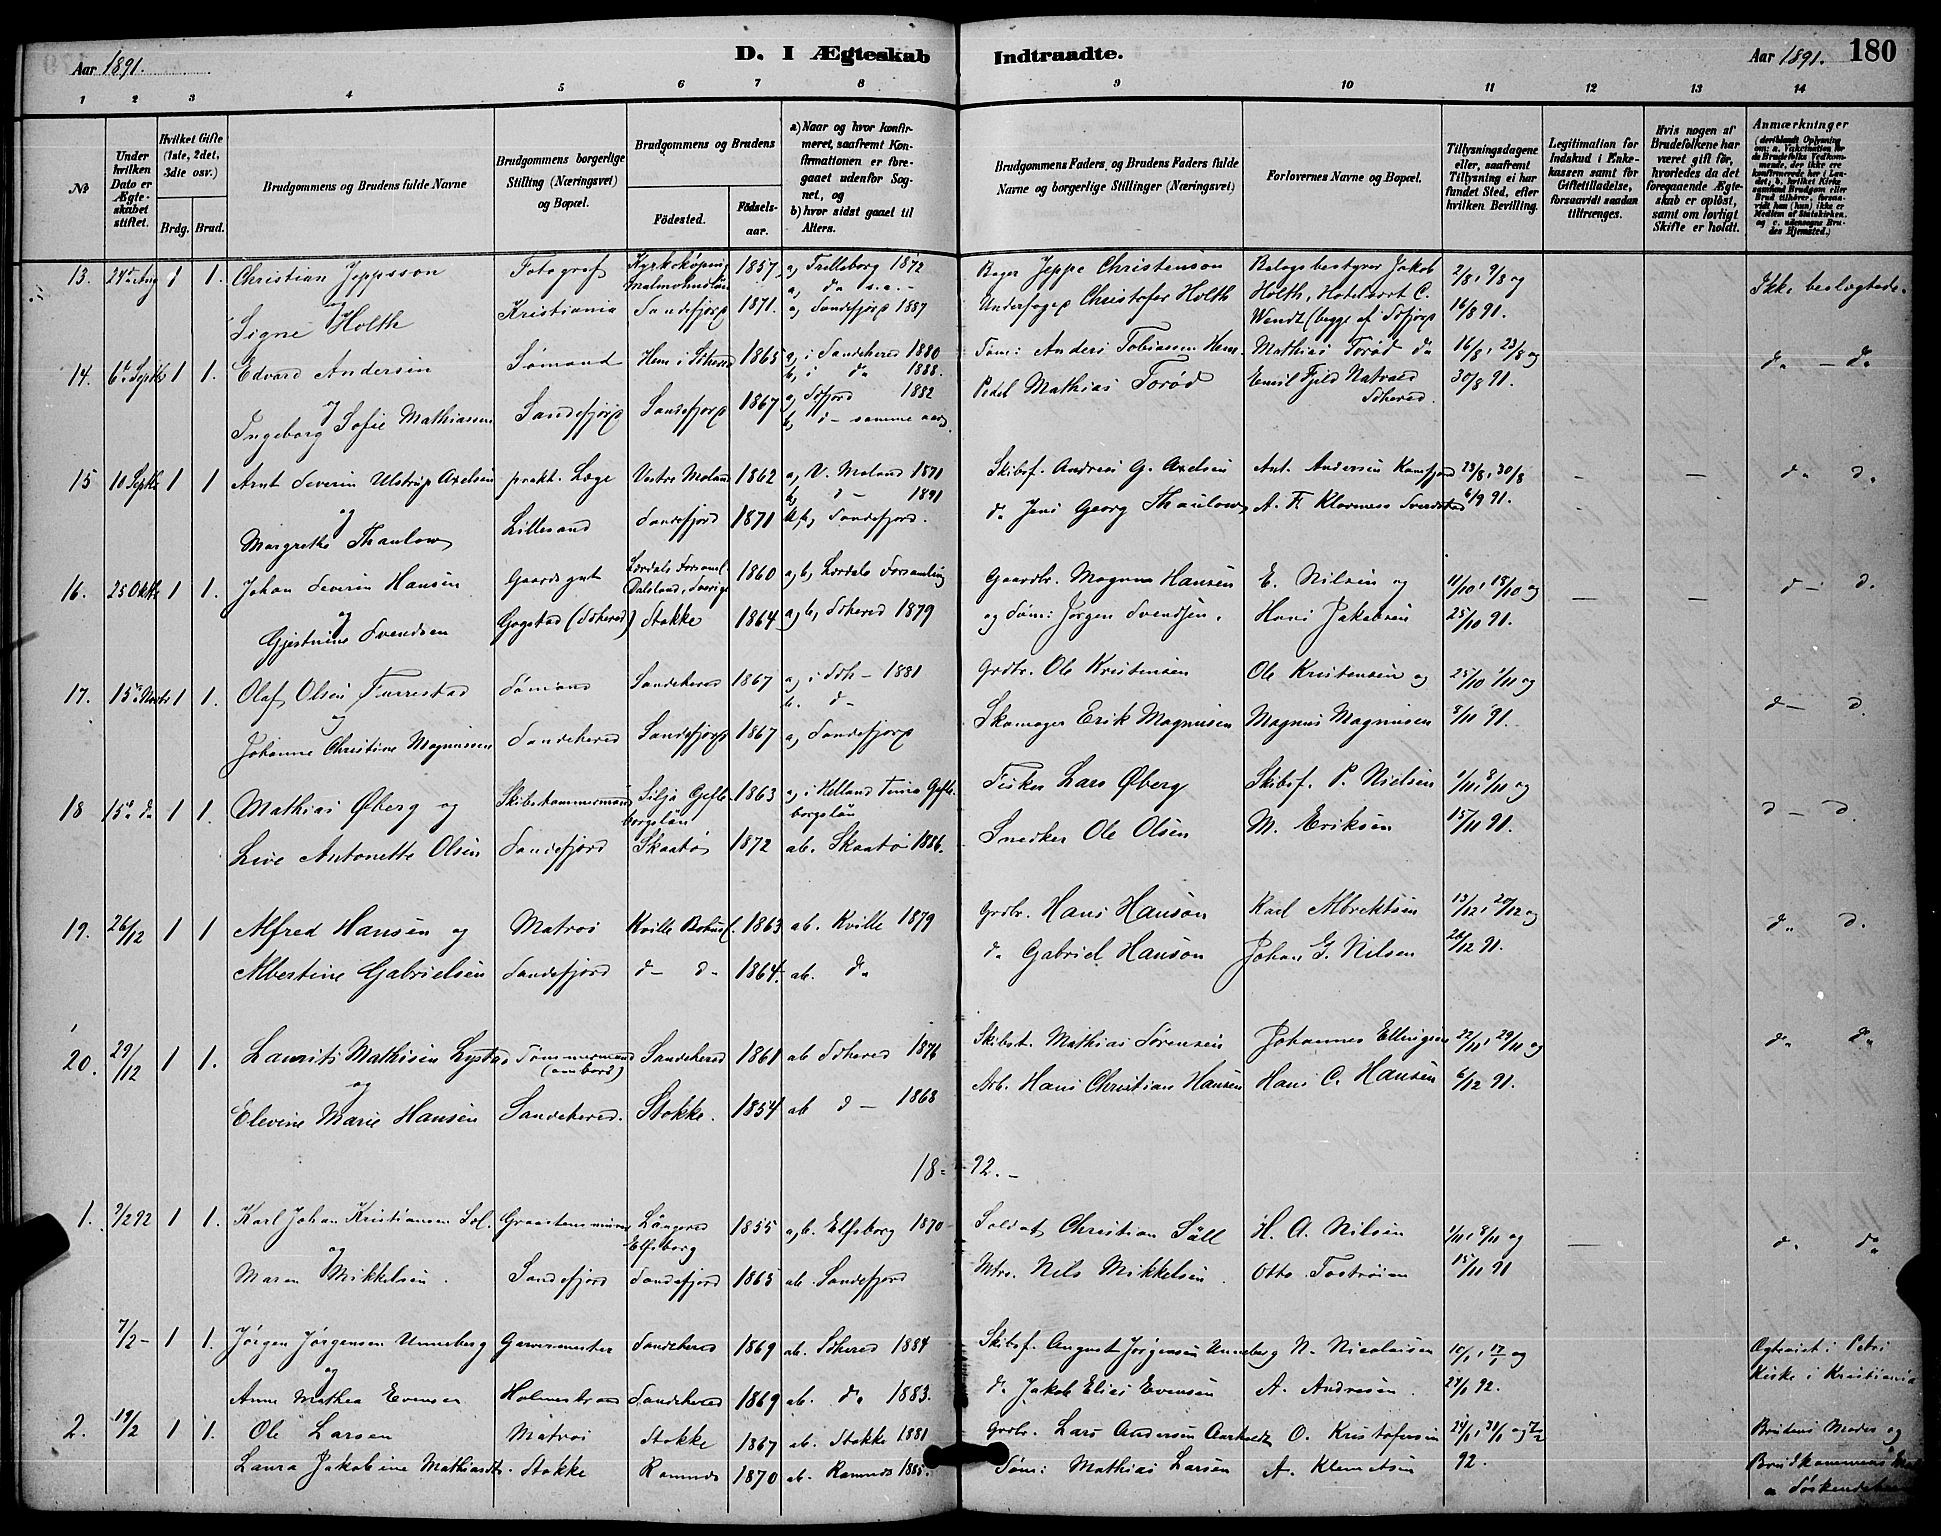 Aar 1891.
D. I Ægteskab Indtraadte.
Aar 1891. 180
1 2 3 4 5 6 7 8 9 10 11 12 13 14
No
Under hvilken Dato er Ægteskabet stiftet.
Hvilket Gifte (1ste, 2det, 3die osv.)
Brdg. Brud.
Brudgommens og Brudens fulde Navne
Brudgommens borgerlige Stilling (Næringsvei) og Bopæl.
Brudgommens og Brudens
Födested. Födselsaar.
a) Naar og hvor konfirmeret, saafremt Konfirmationen er foregaaet udenfor Sognet, og
b) hvor sidst gaaet til Alters.
Brudgommens Faders, og Brudens Faders fulde Navne og borgerlige Stillinger (Næringsvei)
Forlovernes Navne og Bopæl.
Tillysningsdagene eller, saafremt Tillysning ei har fundet Sted, efter hvilken Bevilling.
Legitimation for Indskud i Enkekassen samt for Giftetilladelse, forsaavidt saadan tiltrænges.
Hvis nogen af Brudefolkene har været gift för, hvorledes da det foregaaende Ægteskab er oplöst, samt om lovligt Skifte er holdt.
Anmærkninger
13. 24de Aug 1 1. Christian Jeppsson Fotograf Kyrkoköping Malmøhuslän 1857 a, Trelleborg 1872 Bager Jeppe Christenson Bologsbestyrer Jakob 2/8, 9/8 og Ikke beslægtede.
og Signe Holth Kristiania Sandefjord 1871. a, Sandefjord 1887 Christofer Holth Holth, Hotelvært C. Wendt (begge af Sfjord 16/8 91.
14. 6te Septbr 1 1. Edvard Andersen Sømand Hem i Sdhered 1865 a, i Sandehered 1880 b, i do 1888. Søm: Anders Tobiassen Hem Mathias Torød do 16/8, 23/8 og do - do
og Ingeborg Sofie Mathiassen Sandefjord Sandefjord 1867 a, Sdfjord 1882 b, d - samme aar. Mathias Torød Emil Fjeld Natvald Sdhered. 30/8 91.
15 10 Septbr 1 1 Arnt Severin Ulstrup Axelsen prakt. Læge Vestre Moland 1862 a, V. Moland 1871 b, d - 1891 Skibsf. Andreas G. Axelsen Ant. Andersen Kamfjord 23/8, 30/8 - - do do
og Margrethe Thaulow Lillesand Sandefjord 1871 Sandefjord. do Jens Georg Thaulow A. F. Klaveness 6/9 91.
16. 25 Oktbr 1 1. Johan Severin Hansen Gaardsgut Lærdals Forsaml. Dalsland, Sverige 1860 a, b, Lærdals Forsamling Gaardbr. Magnus Hansen E. Nilsen og 11/10, 18/10 og - - d - do
og Gjestnine Svendsen Gogstad (Sdhered) Stokke 1864 a, b, Sdhered 1879 og Søm: Jørgen Svendsen. Hans Jakobsen 25/10 91.
17. 15de Novbr 1 1. Olaf Olsen Furrestad Sømand Sandehered 1867 a, i Sdh - 1881 b. d - Grdbr. Ole Kristensen Ole Kristensen og 25/10 1/11 og d - d.
og Johanne Christine Magnussen Sandehered Sandefjord 1867 a, Sandefjord Skomager Erik Magnusen Magnus Magnusen 8/11 91.
18 15de do 1 1. Mathias Øberg og Skibstømmermand Silja Gefleborgslän 1863 a, i Gefleborgslän Fisker Lars Øberg Skibsf. P. Nielsen 1/11, 8/11 og d - d.
Live Antonette Olsen Sandefjord Skaatø 1872 ab. Skaatø 1886. Snedker Ole Olsen M. Eriksen 15/11 91.
19. 26/12 1 1 Alfred Hansen og Matros Kville Bohusl. 1863 ab. Kville 1879 Grdbr. Hans Hanson Karl Albrektsen 13/12, 20/12 og do d.
Albertine Gabrielsen Sandefjord d - do 1864. ab. do do Gabriel Hanson Johan G. Nilsen 26/12 91.
20. 29/12 1 1. Laurits Mathisen Lystad Tømmermand (ombord) Sandehered 1861 ab Sdhered 1876 Skibst. Mathias Sørensen Johannes Ellingsen 22/11, 29/11 og do do
og Elevine Marie Hansen Sandehered. Stokke. 1854 ab d - 1868 Arb. Hans Christian Hansen Hans C. Hansen 6/12 91.
18 - 92. -
1. 9/2 92 1 1. Karl Johan Kristiansen Säl. Graastensminer Längered Elfsborg 1855 a, b. Elfsborg 1870 Soldat Christian Säll H. A. Nilsen 1/11, 8/11 og - do do
og Maren Mikkelsen. Sandefjord Sandefjord 1865 ab. Sandefjord Mtrs. Nels Mikkelsen. Otto 15/11 91
7/2 - 1 1. Jørgen Jørgensen Unneberg Garvermester Sandehered 1869 ab. Sdhered 1884 Skibsf. August Jørgensen Unneberg N. Nicolaisen 10/1, 17/1 og Ogtviet i Petri
og Anne Mathea Evensen Holmestrand Sandehered 1869 ab. do 1883. do Jakob Elias Evensen A. Andresen. 24/1 92. Kirke i Kristiania
2. 19/2 1 1. Ole Larsen Matros Stokke 1867 ab. Stokke 1881 Grdbr. Lars Andersen Aarholt O. Kristofersen 24/1, 31/1 og 7/2 Brudens Moder og
Laura Jakobine Mathiasdtr. Stokke Ramnes 1870 ab. Ramnes 1885. Søm: Mathias Larsen A. Klemetsen 92. Brudgommens
Søskendebørn